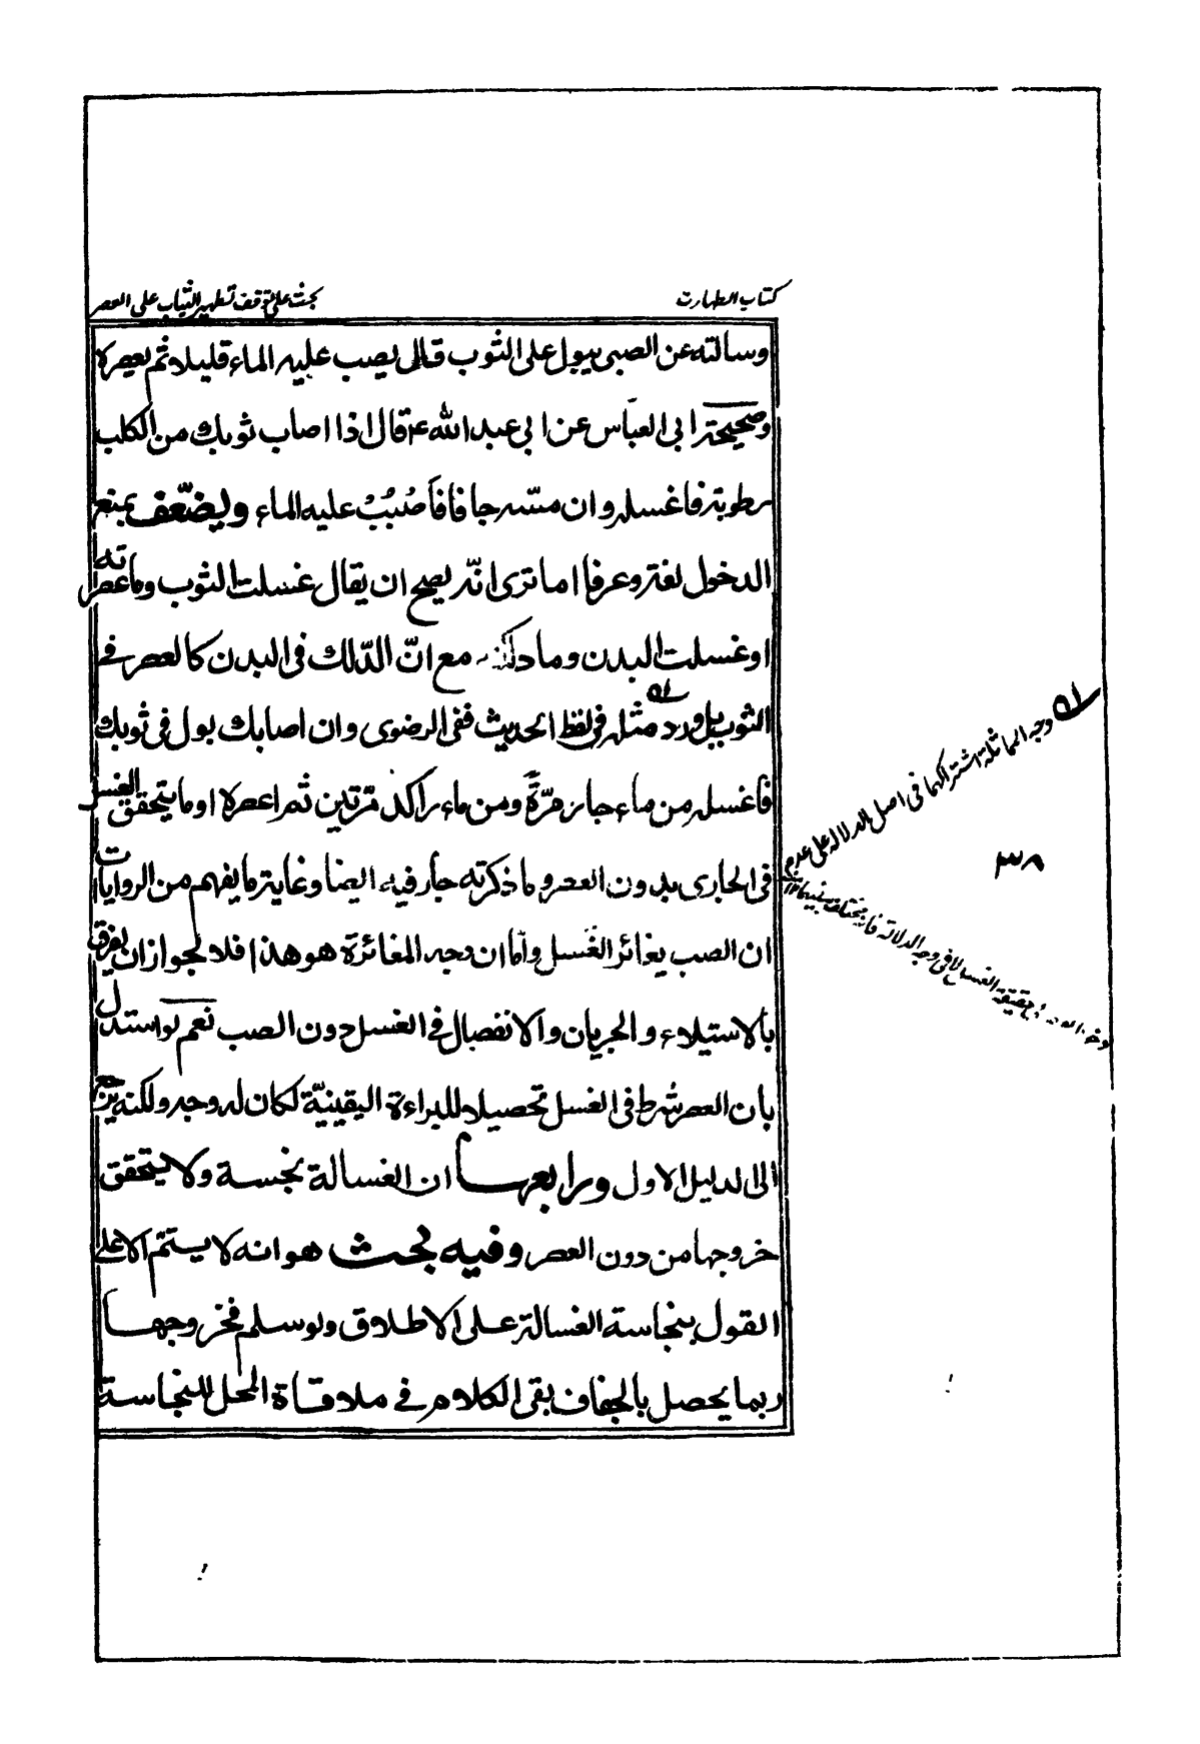 كتاب الطهارت
بحث على توقف تطهير الثياب على العصر
وسالته عن الصبى يبول على الثوب قال يصب عليه الماء قليلا ثم يعصره
وصحيحة ابى العباس عن ابى عبد الله ع قال اذا اصاب ثوبك من الكلب
رطوبة فاغسله وان مسّه جافا فَاصْبُبْ عليه الماء ويضعّف بمنع
الدخول لغة وعرفا اما ترى انّه يصح ان يقال غسلت الثوب وما عصرته
او غسلت البدن وما دلكته مع انّ الدّلك فى البدن كالعصر فى
الثوب بل ورد مثله فى لفظ الحديث ففى الرضوى وان اصابك بول فى ثوبك
فاغسله من ماء جار مرّةً ومن ماء راكد مرتين ثم اعصره او ما يتحقق الغسل
فى الجارى بدون العصر وما ذكرته جار فيه ايضا وغاية ما يفهم من الروايات
ان الصب يغائر الغَسل وأما ان وجه المغائرة هو هذا فلا لجواز ان يفرق
بالاستيلاء والجريان والانفصال فى الغسل دون الصب نعم لو استدل
بان العصر شرط فى الغسل تحصيلا للبراءة اليقينيّة لكان له وجه ولكنه يرجع
الى الدليل الاول ورابعها ان الغسالة نجسة ولا يتحقق
خروجها من دون العصر وفيه بحث هو انه لا يستتم الا على
القول بنجاسة الغسالة على الاطلاق ولو سلم فخروجها
ربما يحصل بالجفاف بقى الكلام فى ملاقاة المحل للنجاسة
وجه المماثلة اشتراكهما فى اصل الدلالة على عدم
حقيقة الغسل لا فى وجه الدلالة فانه مختلف بينهما ١٢
٣٨